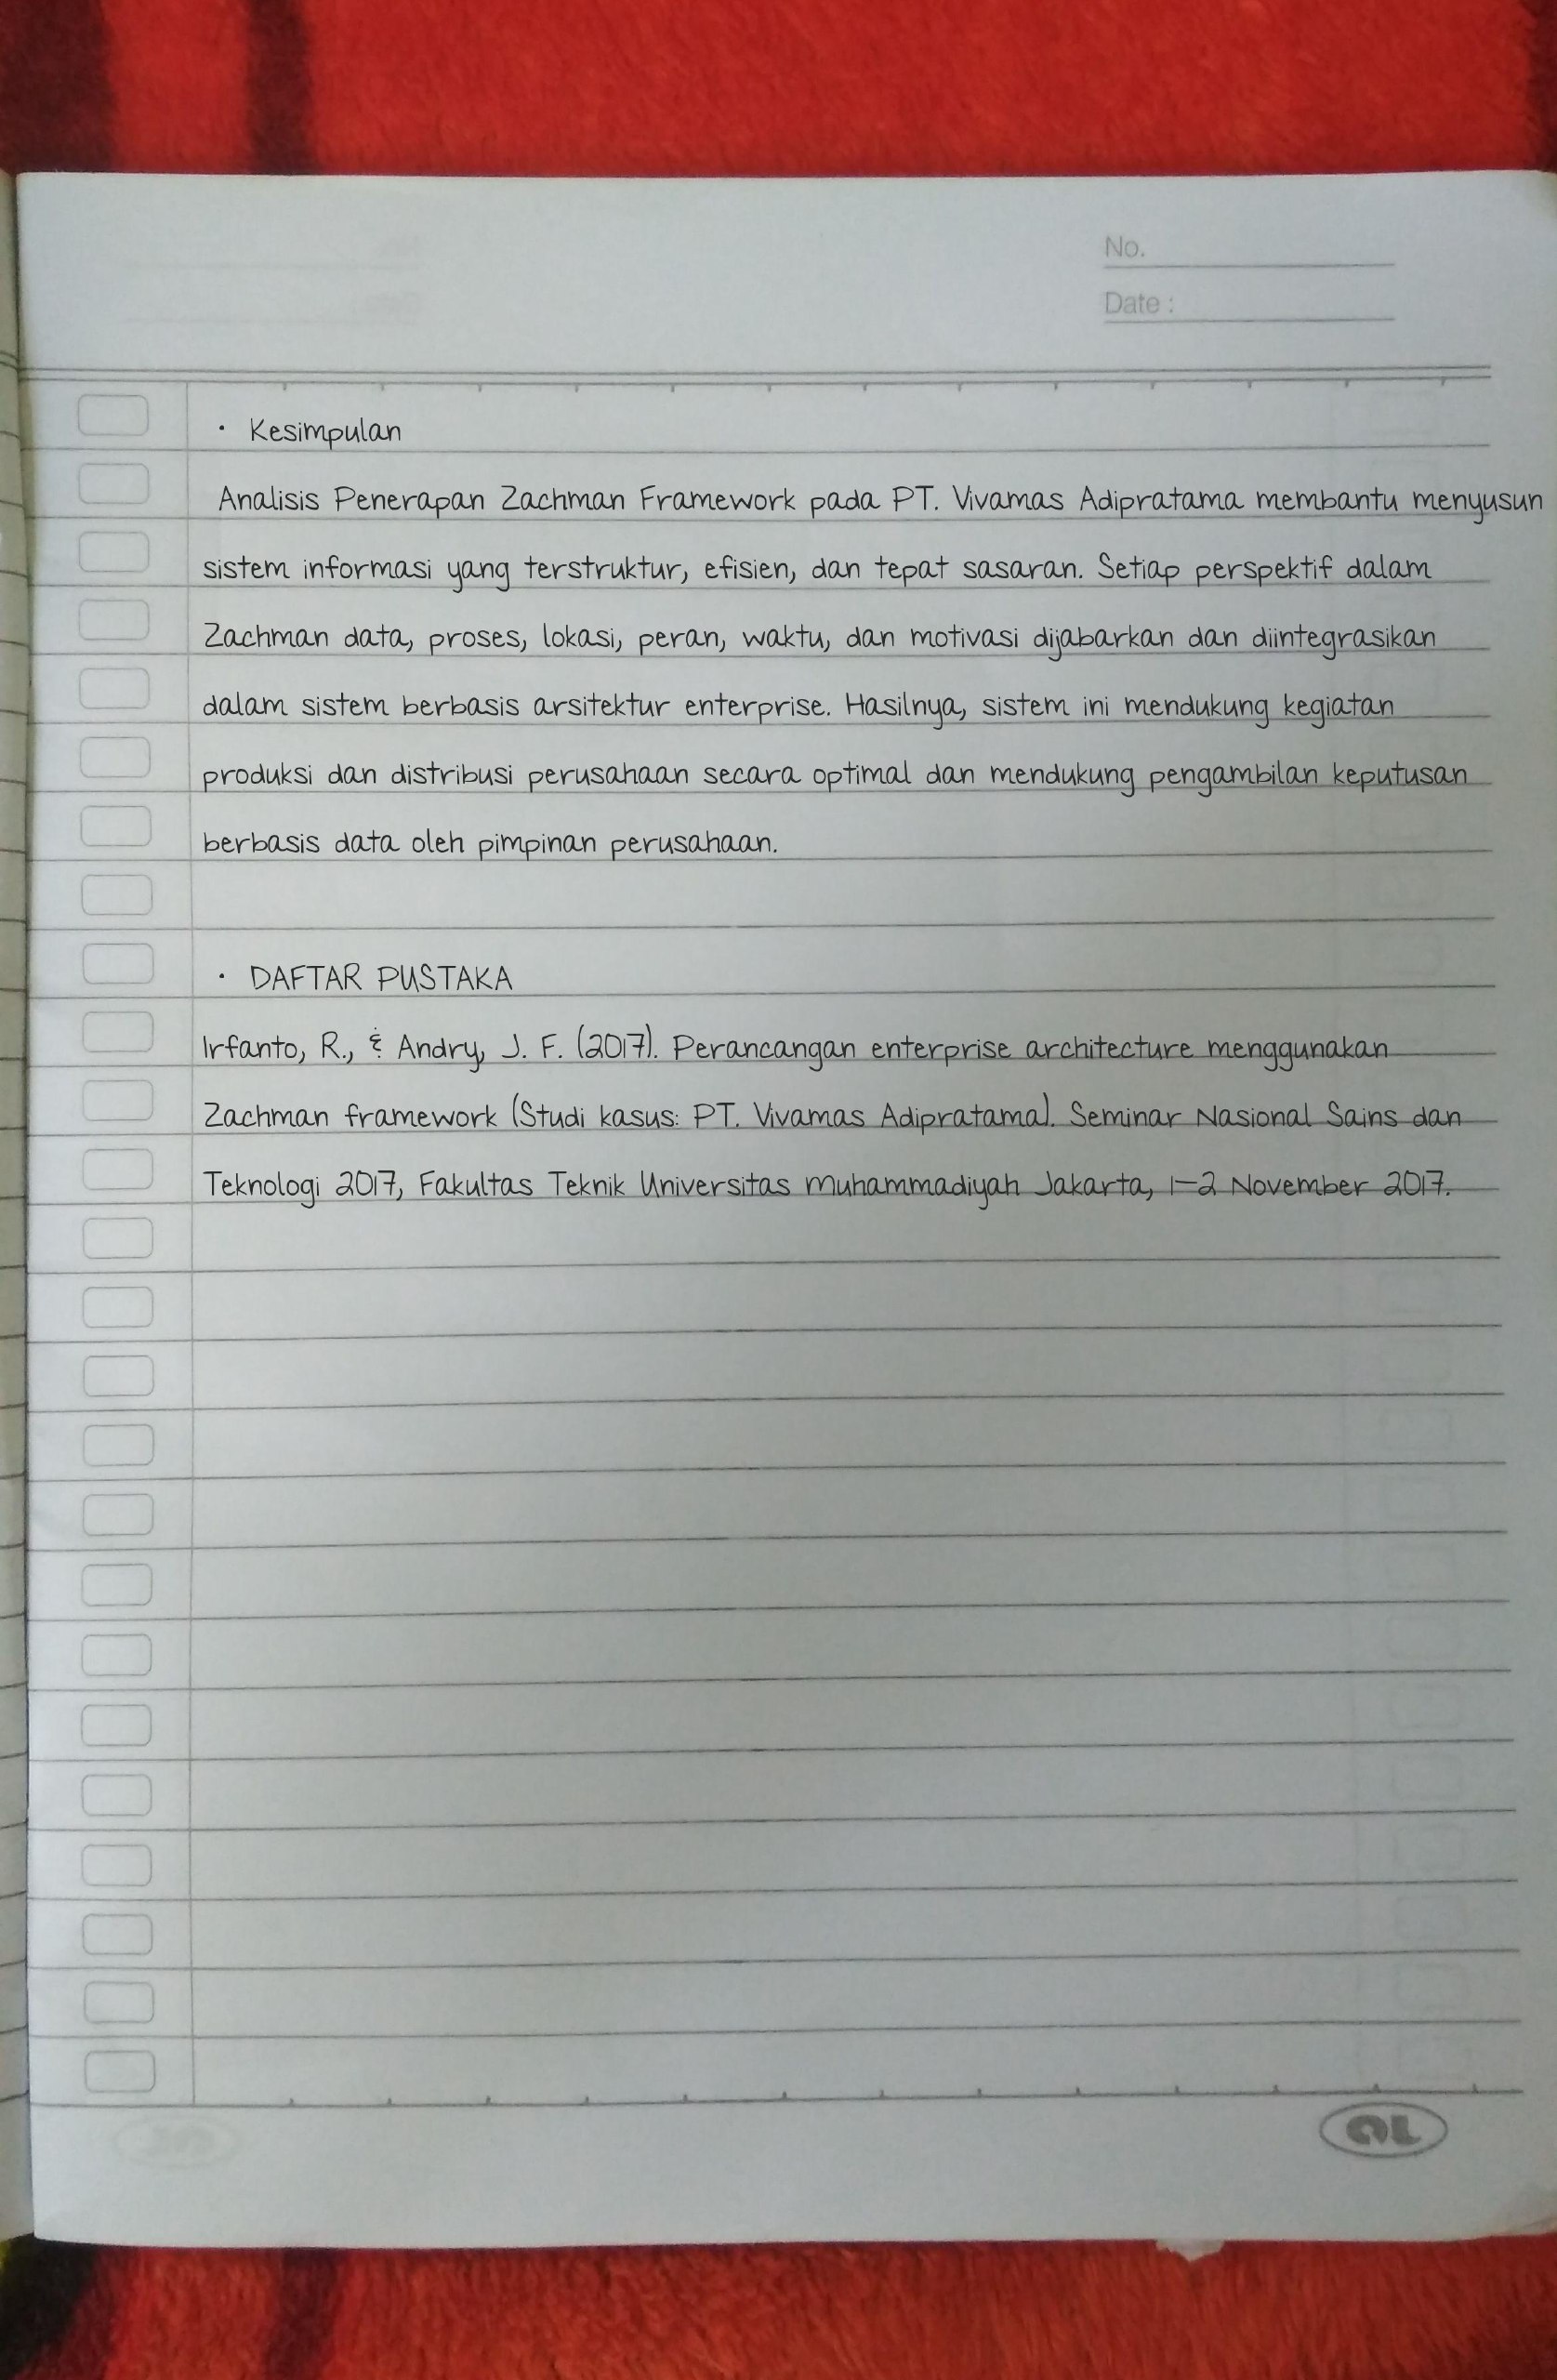 No.
Date :
• Kesimpulan
Analisis Penerapan Zachman Framework pada PT. Vivamas Adipratama membantu menyusun
sistem informasi yang terstruktur, efisien, dan tepat sasaran. Setiap perspektif dalam
Zachman data, proses, lokasi, peran, waktu, dan motivasi dijabarkan dan diintegrasikan
dalam sistem berbasis arsitektur enterprise. Hasilnya, sistem ini mendukung kegiatan
produksi dan distribusi perusahaan secara optimal dan mendukung pengambilan keputusan
berbasis data oleh pimpinan perusahaan.
• DAFTAR PUSTAKA
Irfanto, R., & Andry, J. F. (2017). Perancangan enterprise architecture menggunakan
Zachman framework (Studi kasus: PT. Vivamas Adipratama). Seminar Nasional Sains dan
Teknologi 2017, Fakultas Teknik Universitas Muhammadiyah Jakarta, 1–2 November 2017.